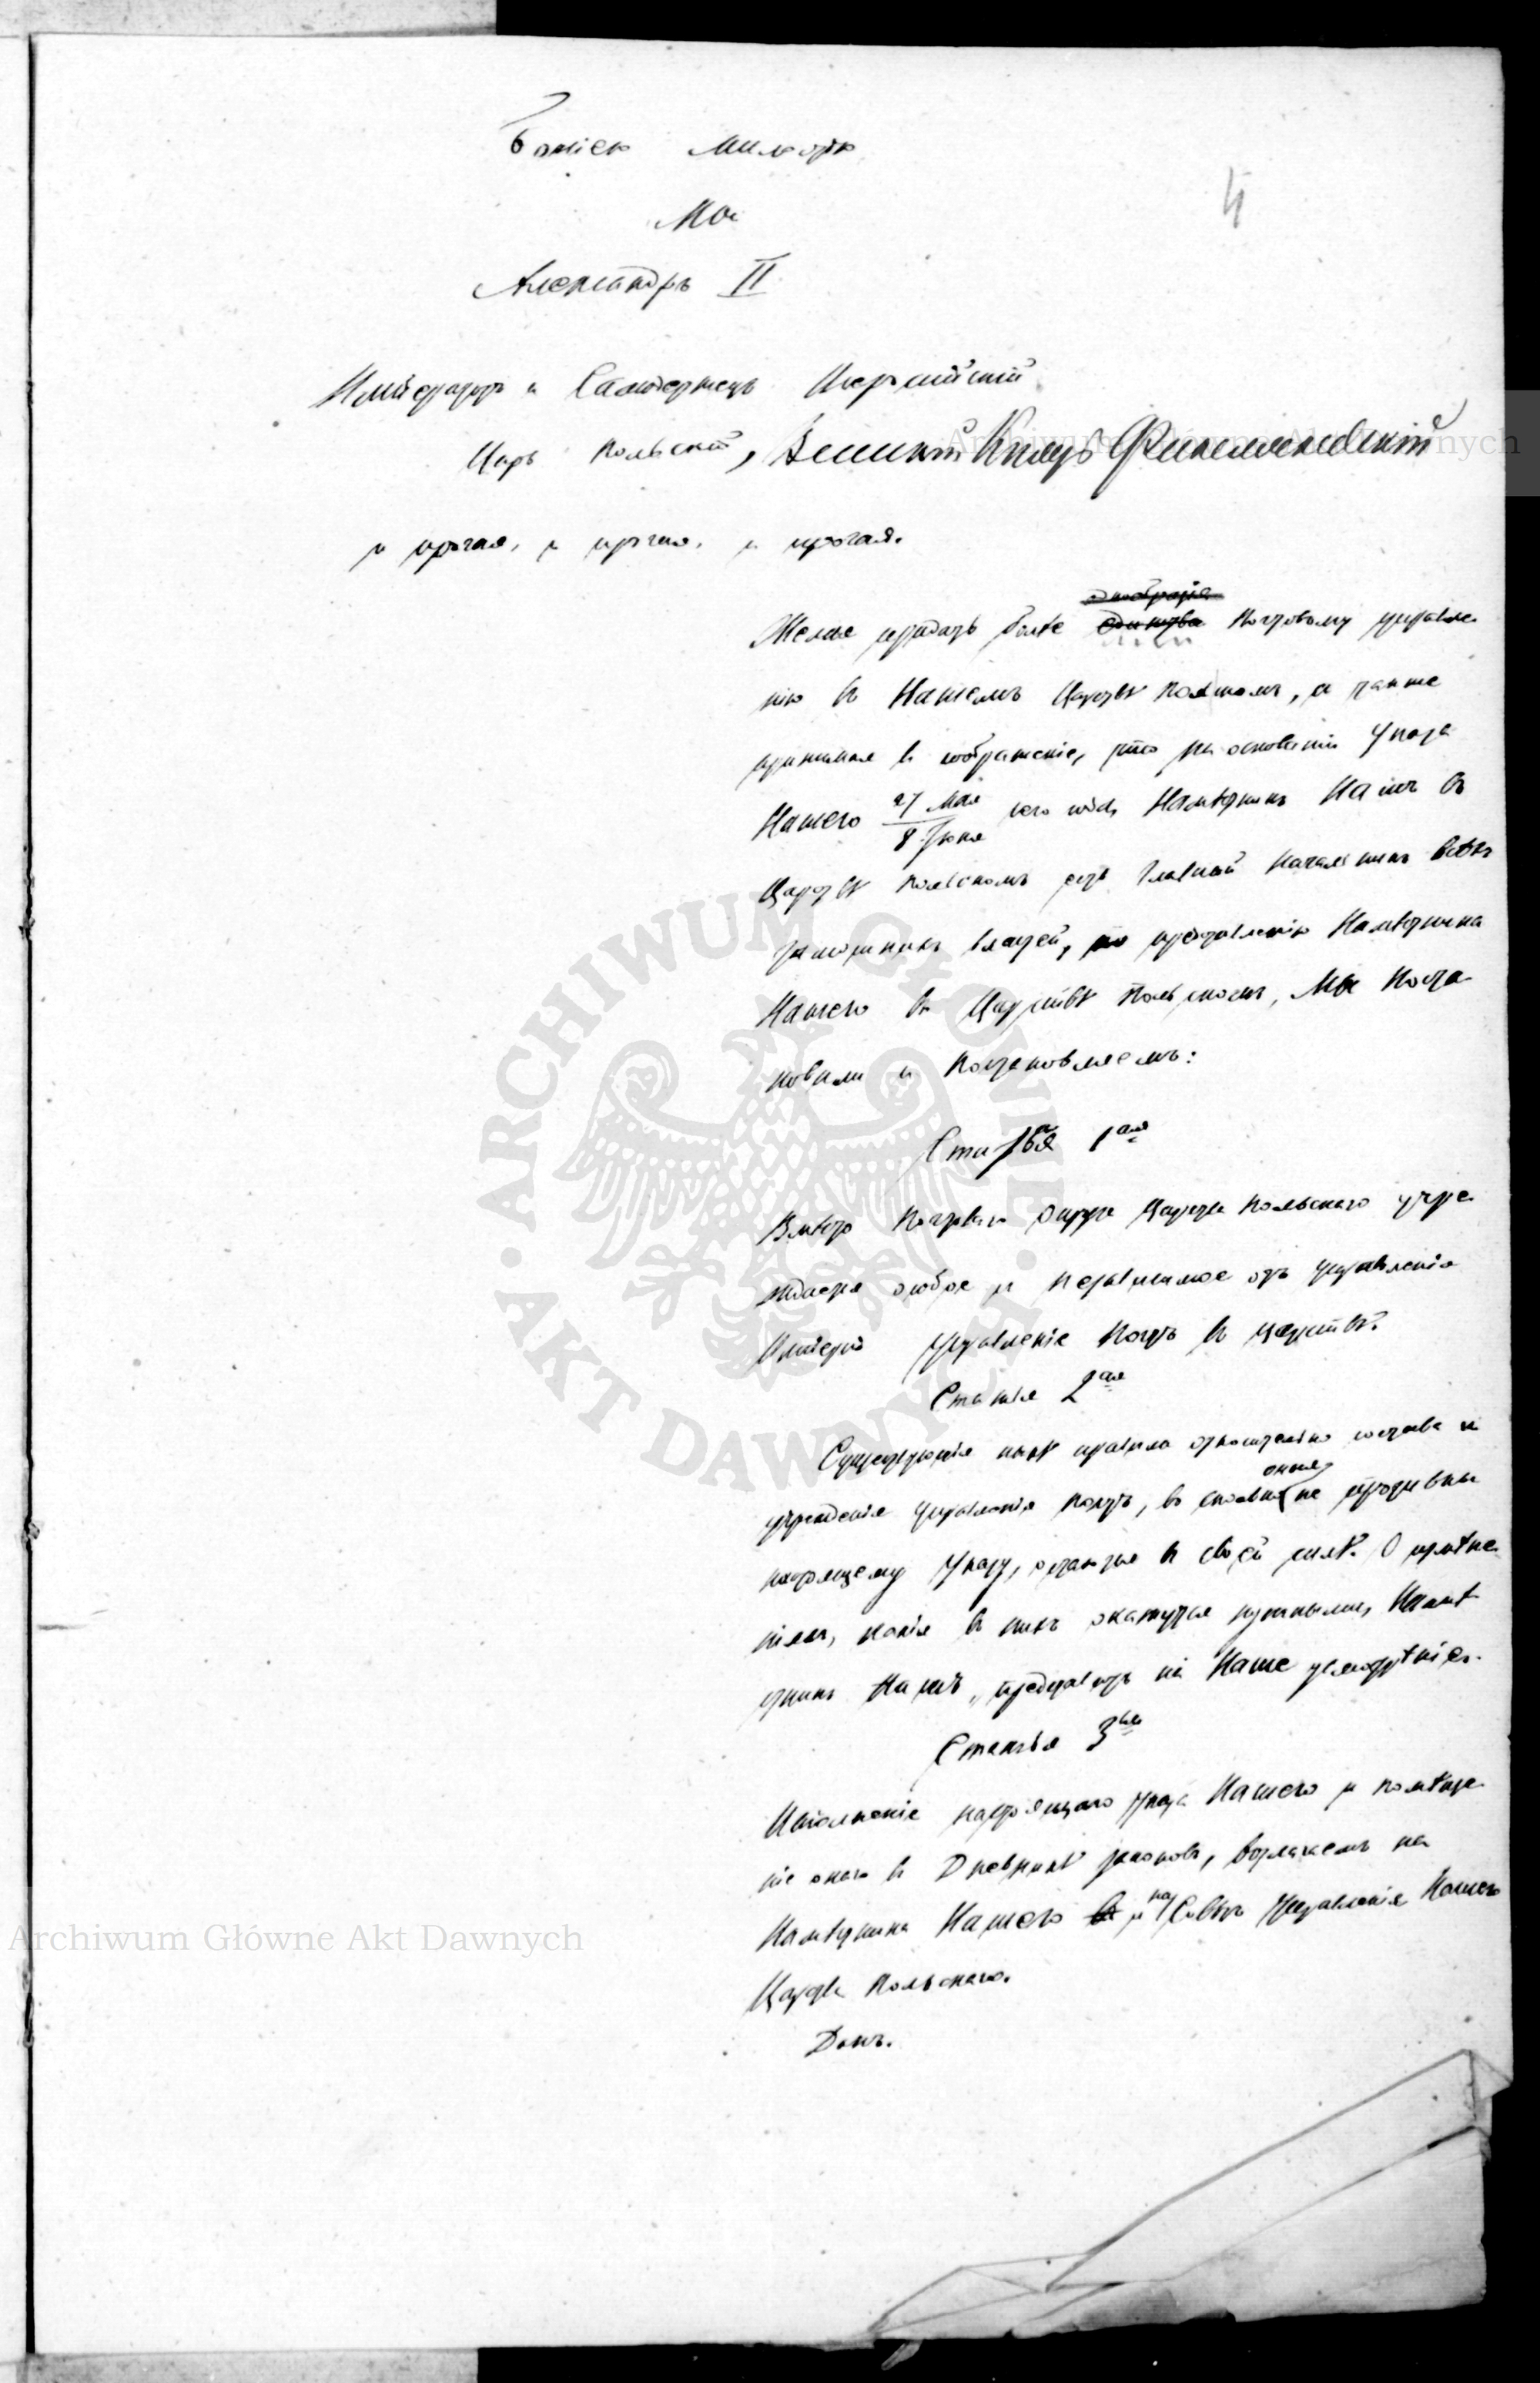 Божіею милостію
4
Мы
Александръ II
Императоръ и Самодержецъ Всероссійскій
Царь Польскій, Великій Князь Финляндскій
и прочая, и прочая, и прочая.
однообразія
Желая придать болѣе единства Почтовому управле-
нію въ Нашемъ Царствѣ Польскомъ, а также
принимая въ соображеніе, что на основаніи Указа
Нашего 27 Мая / 8 Іюня сего года, Намѣстникъ Нашъ въ
Царствѣ Польскомъ есть Главный Начальникъ всѣхъ
тамошнихъ властей, по представленію Намѣстника
Нашего въ Царствѣ Польскомъ, Мы Поста-
новили и Постановляемъ:
Статья 1ая
Вмѣсто Почтоваго Округа Царства Польскаго учре-
ждается особое и независимое отъ управленія
Имперіи управленіе Почтъ въ Царствѣ.
Статья 2ая
Существующія нынѣ правила относительно состава и
оныя
учрежденія Управленія Почтъ, во сколько не противны
настоящему Указу, остаются въ своей силѣ. О измѣне-
ніяхъ, какія въ нихъ окажутся нужными, Намѣ-
стникъ Нашъ, представитъ на Наше усмотрѣніе.
Статья 3ья
Исполненіе настоящаго Указа Нашего и помѣще-
ніе онаго въ Дневникѣ законовъ, возлагаемъ на
Намѣстника Нашего и на Совѣтъ Управленія Нашего
Царства Польскаго.
Данъ.
Archiwum Główne Akt Dawnych
Archiwum Główne Akt Dawnych
ARCHIWUM GŁÓWNE • AKT DAWNYCH •